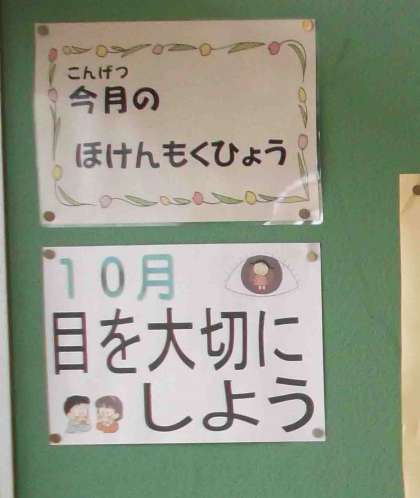 こんげつ
今月の
ほけんもくひょう
10月
目を大切に
しよう